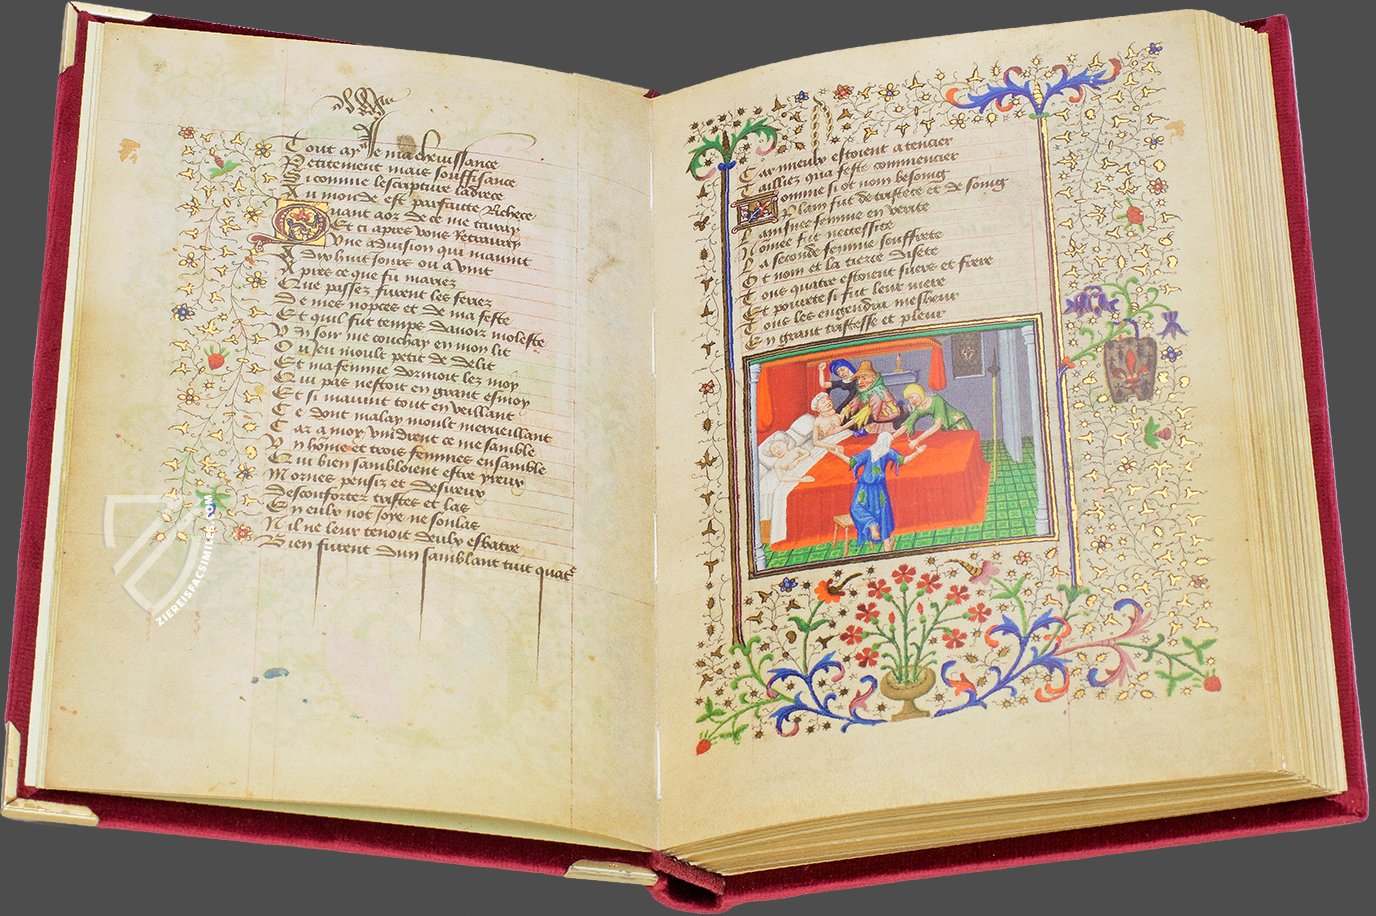 Tout ay Je ma chevissance
Petitement mais souffisance
Si comme lescripture ladrece
Au monde est parfaitte Richece
Quant aoz de ce me tairay
Et ci apres vous Retrairay
Une advision qui mavint
A dix huit Jours ou a vint
Apres ce que fu mariez
Que passez furent les ferez
De mes nopces et de ma feste
Et quil fut temps davoir moleste
Un soir me couchay en mon lit
Ou eu moult petit de delit
Et ma femme dormoit lez moy
Qui pas nestoit en grant esmoy
Et si mavint tout en veillant
Ce dont malay moult merveillant
Car a moy vindrent ce me samble
Un homme et trois femmes ensamble
Qui bien sambloient estre yreux
Mornes pensiz et desireux
Desconfortez tristes et las
En eulx not Joye ne soulas
Nil ne leur tenoit deulx esbatre
Bien furent dun samblant tuit quatre
Car mieulx estoient a tencier
Tailliez qua feste commencier
Lomme si ot nom besoing
Plain fut de tristece et de soing
Lainsnee femme en verite
Nomee fut necessite
La seconde femme souffrete
Ot nom et la tierce disete
Tous quatre estoient suers et frere
Et povrete si fut leur mere
Tous les engendra mescheur
En grant tristesse et pleur
ZIEREISFACSIMILES.COM